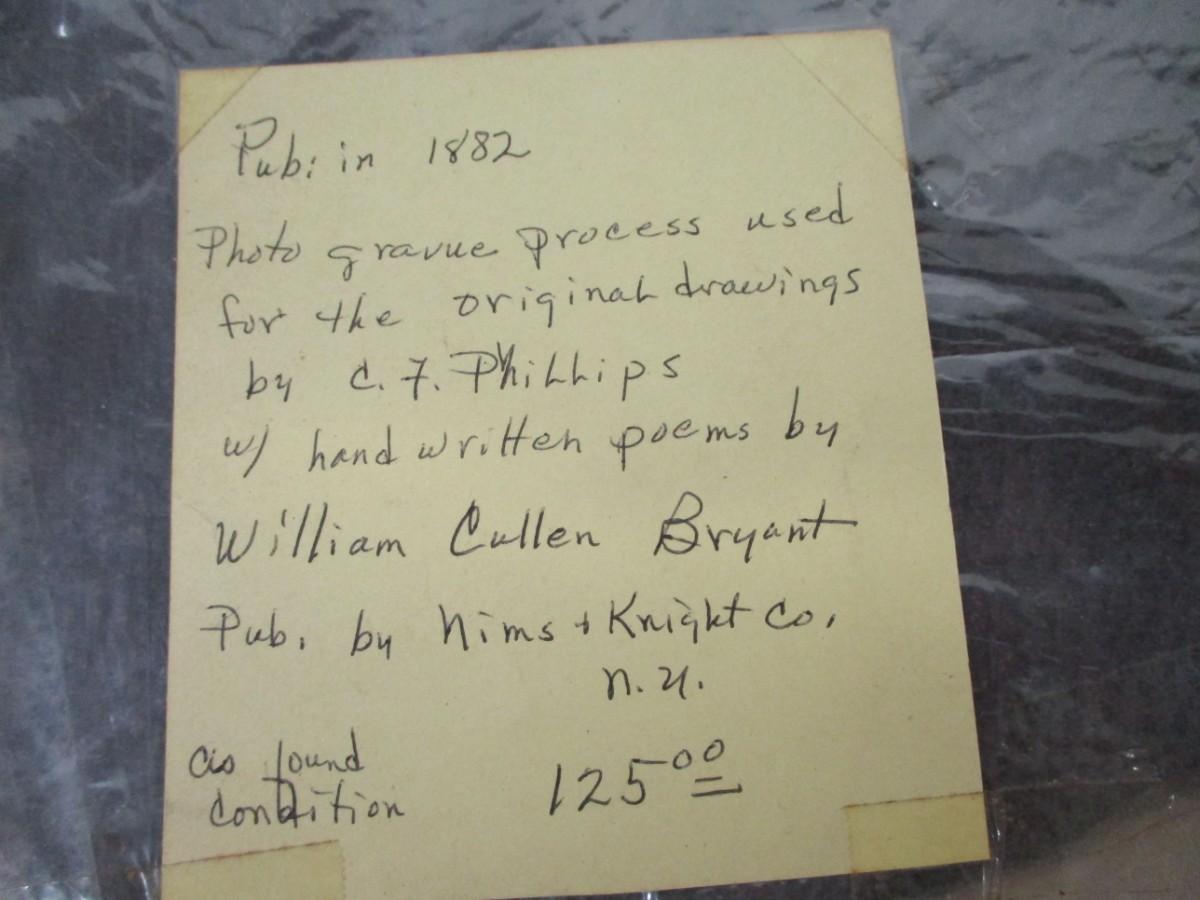 Pub: in 1882
Photo gravue process used
for the original drawings
by C. F. Phillips
w/ hand written poems by
William Cullen Bryant
Pub. by Nims + Knight Co.
N. Y.
as found
condition
125⁰⁰